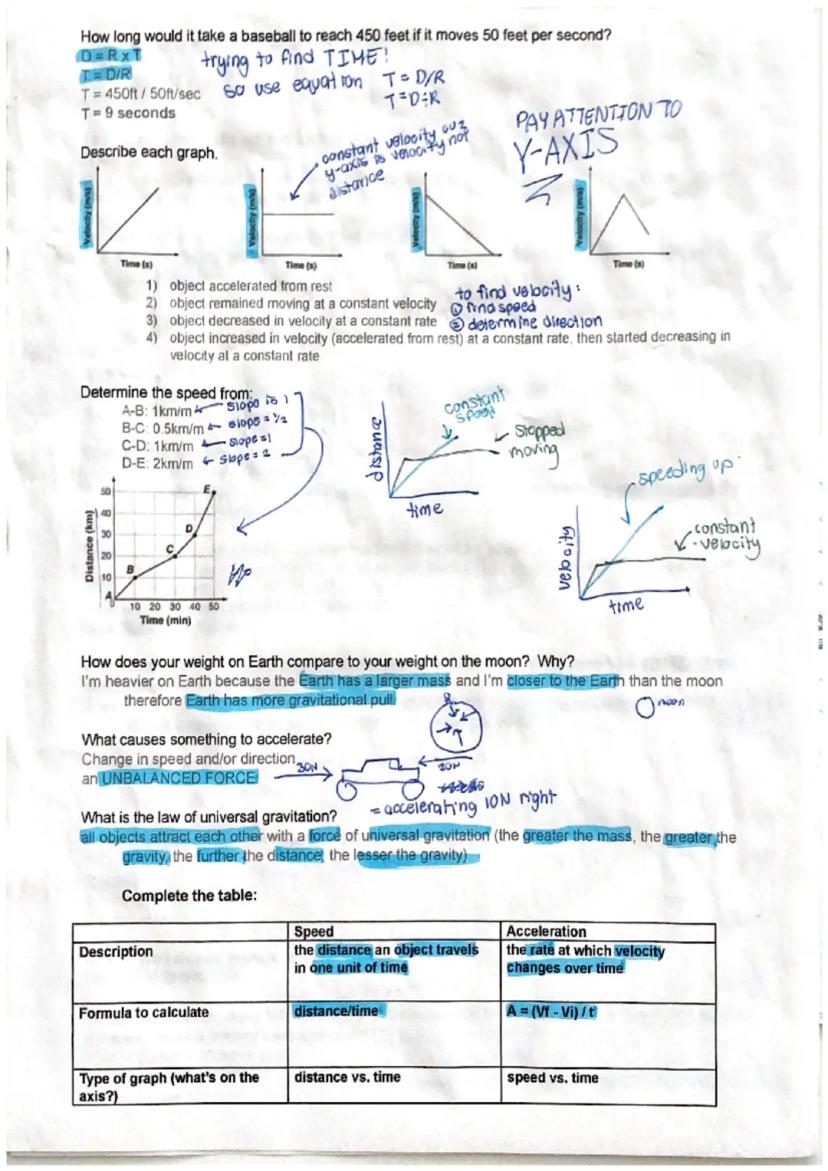 How long would it take a baseball to reach 450 feet if it moves 50 feet per second?
D = R x T
T = D/R
T = 450ft / 50ft/sec
T = 9 seconds
trying to find TIME!
so use equation T = D/R
T = D÷R
PAY ATTENTION TO
Y-AXIS
Describe each graph.
constant velocity cuz
y-axis is velocity not
distance
Velocity (m/s)
Time (s)
Velocity (m/s)
Time (s)
Velocity (m/s)
Time (s)
Velocity (m/s)
Time (s)
1) object accelerated from rest
2) object remained moving at a constant velocity
3) object decreased in velocity at a constant rate
4) object increased in velocity (accelerated from rest) at a constant rate, then started decreasing in
velocity at a constant rate
to find velocity:
① find speed
② determine direction
Determine the speed from:
A-B: 1km/m slope is 1
B-C: 0.5km/m slope = 1/2
C-D: 1km/m slope = 1
D-E: 2km/m slope = 2
constant
speed
stopped
moving
distance
time
speeding up
constant
velocity
velocity
time
Distance (km)
50
40
30
20
10
A
B
C
D
E
10 20 30 40 50
Time (min)
How does your weight on Earth compare to your weight on the moon? Why?
I'm heavier on Earth because the Earth has a larger mass and I'm closer to the Earth than the moon
therefore Earth has more gravitational pull
moon
What causes something to accelerate?
Change in speed and/or direction
an UNBALANCED FORCE
30N
20N
= accelerating 10N right
What is the law of universal gravitation?
all objects attract each other with a force of universal gravitation (the greater the mass, the greater the
gravity, the further the distance, the lesser the gravity)
Complete the table:
Speed Acceleration
Description the distance an object travels the rate at which velocity
in one unit of time changes over time
Formula to calculate distance/time A = (Vf - Vi) / t
Type of graph (what's on the distance vs. time speed vs. time
axis?)